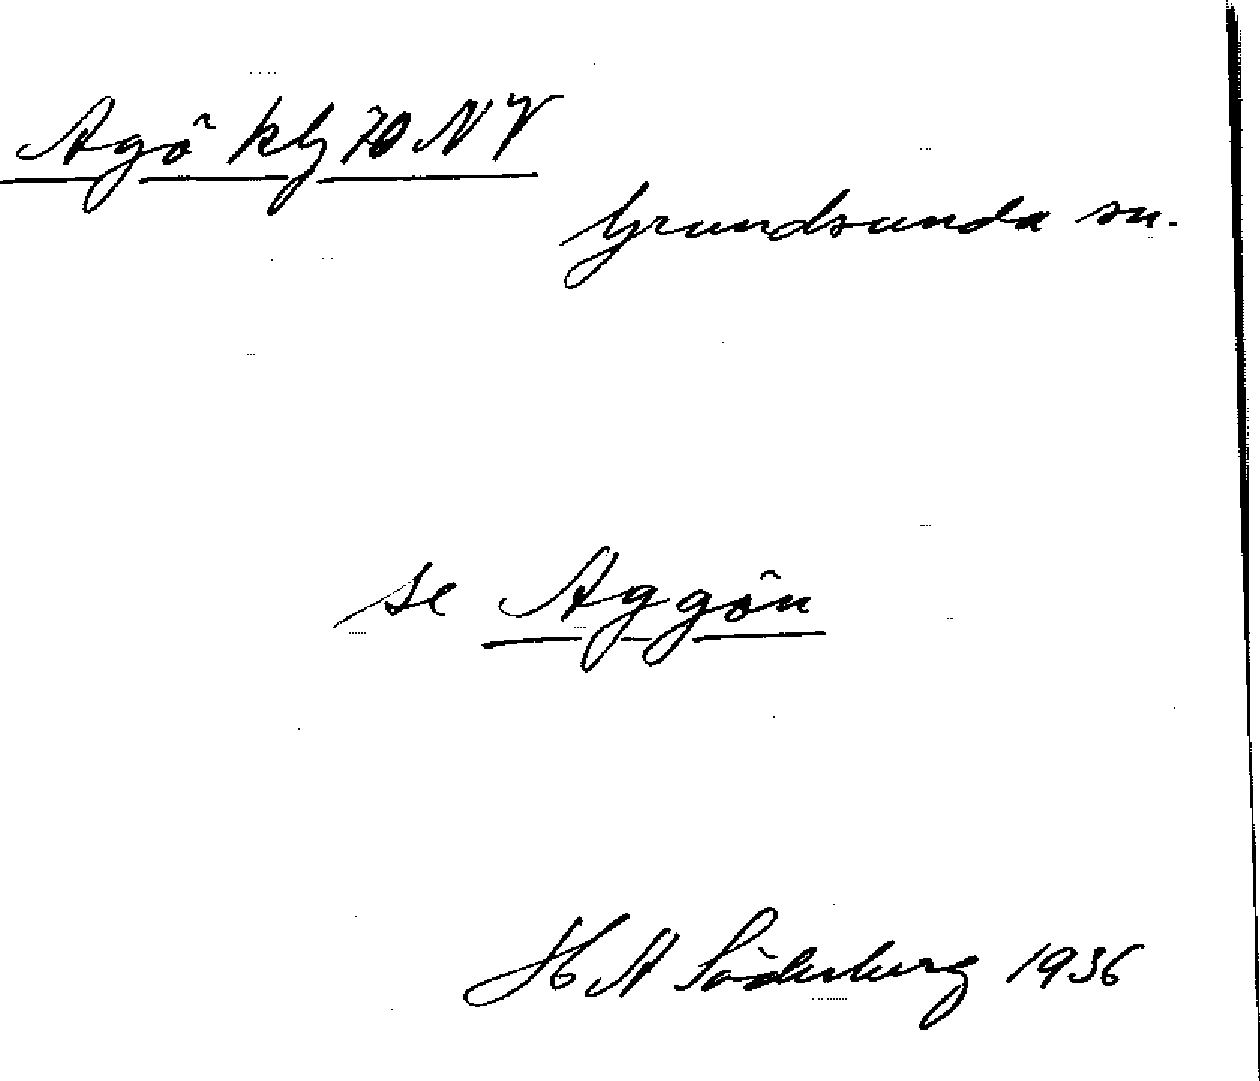 Agö kbl 70 NV
Grundsunda sn.
se Aggön
H A Söderberg 1936